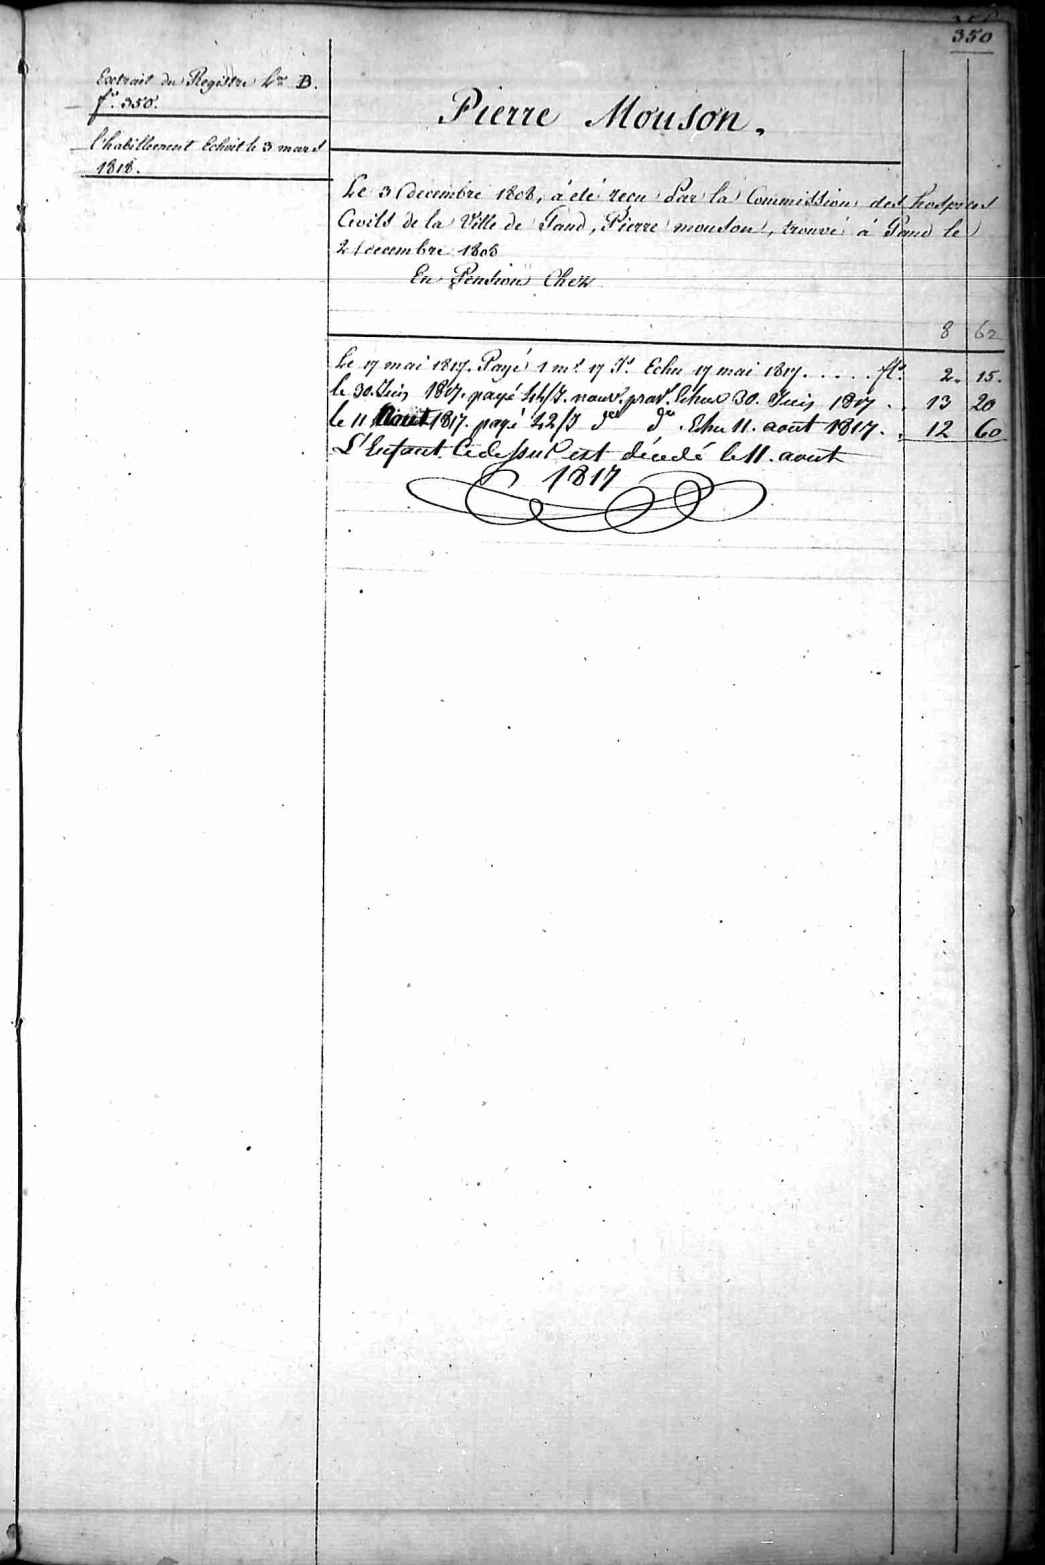 350
Extrait du Registre Lre B.
fo. 350.
l'habillement Echoit le 3 mars
1818.
Pierre Mouson.
Le 3 decembre 1808, à eté recu Par la Commission des hospices
Civils de la Ville de Gand, Pierre mouson, trouvé à Gand le
2 decembre 1808
En Pension Chez
8 62
Le 17 mai 1817. Payé 1 ms. 17 Js. Echu 17 mai 1817. . . . . . fls. 2. 15.
le 30. Juin 1817. payé 44/J. nour. prav. Echus 30. Juin 1817 . . 13 20
le 11 Aout 1817. payé 42/J do do. Echu 11. aout 1817. . 12 60
L'Enfant Cidessus est décedé le 11. aout
1817